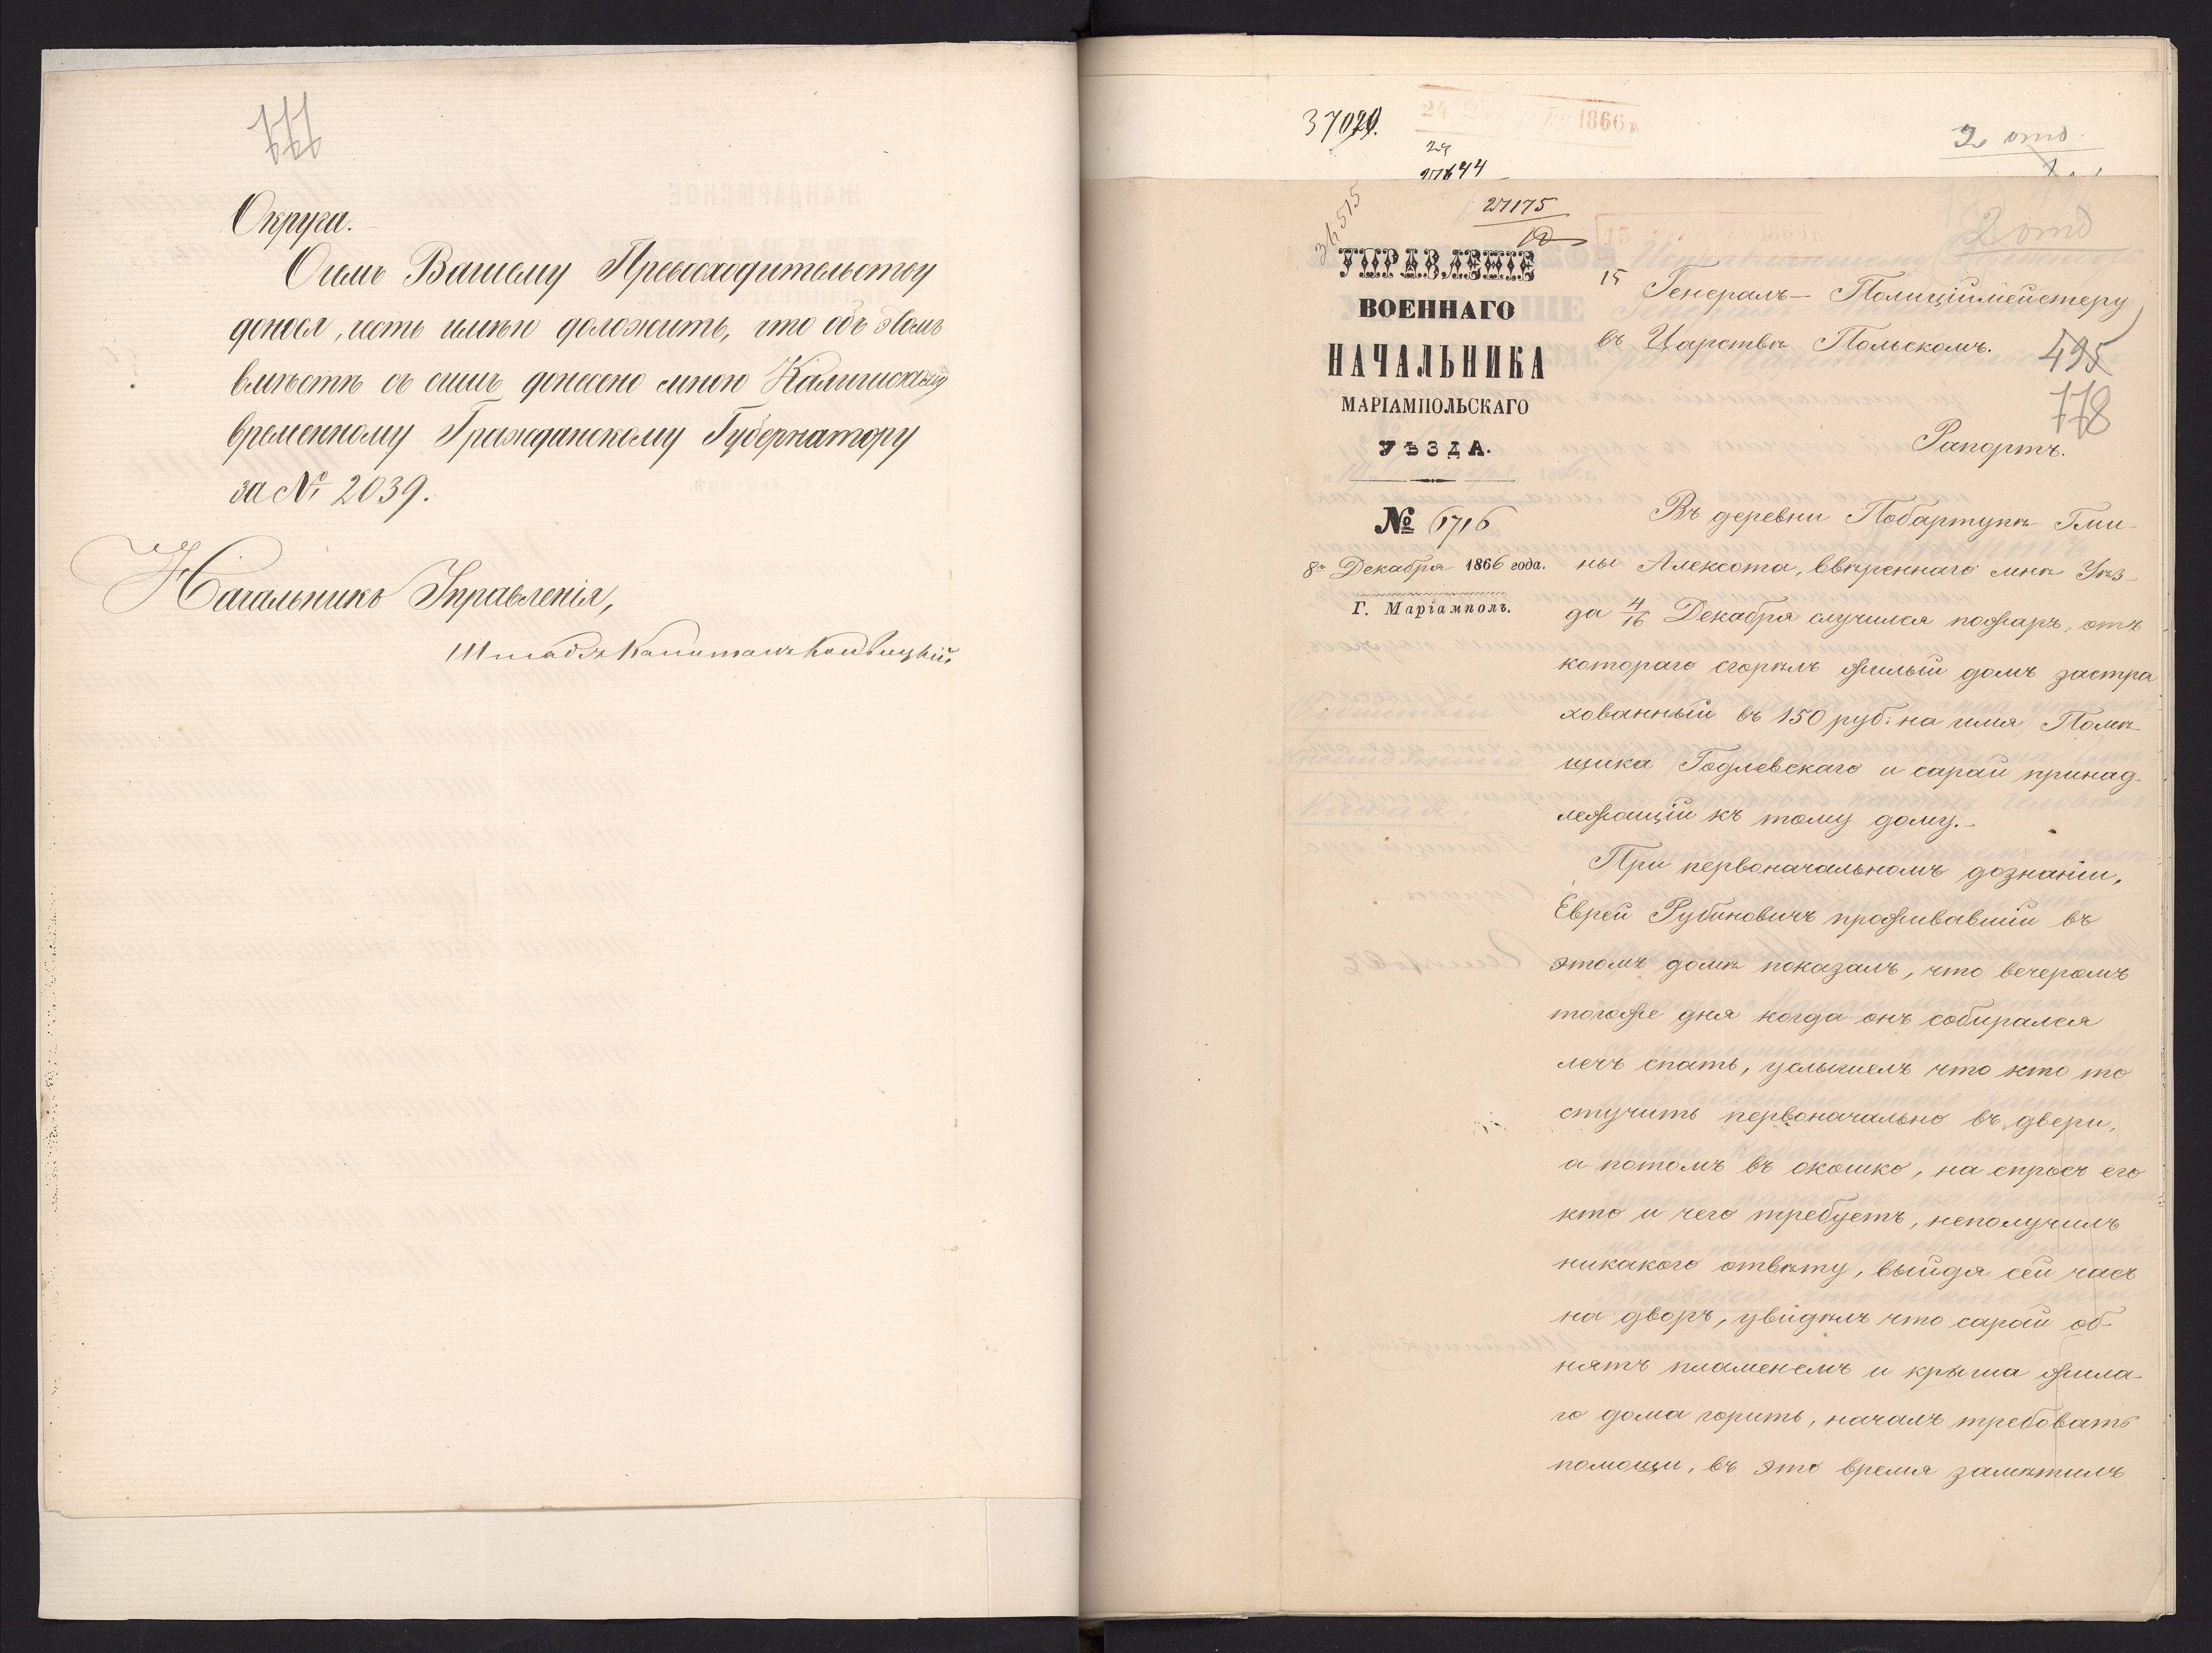 777
Округа.
Симъ Вашему Превосходительству
донося, честь имѣю доложить, что объ этомъ
вмѣстѣ съ симъ донесено мною Калишскому
временному Гражданскому Губернатору
за № 2039.
Начальникъ Управленія,
Штабсъ Капитанъ
24 1866 г.
2 отд.
24
27175
2 отд
УПРАВЛЕНІЕ
ВОЕННАГО
НАЧАЛЬНИКА
МАРІАМПОЛЬСКАГО
УѢЗДА.
№ 6716
8го Декабря 1866 года.
Г. Маріамполь.
15 Генералъ-Полиціймейстеру
въ Царствѣ Польскомъ.
495
778
Рапортъ.
Въ деревни Побартупѣ Гми-
ны Алексота, ввѣреннаго мнѣ Уѣз-
да 4/16 Декабря случился пожаръ, отъ
котораго сгорѣлъ жилый домъ застра
хованный въ 150 руб: на имя Помѣ-
щика Годлевскаго и сарай принад-
лежащій къ тому дому.-
При первоначальномъ дознаніи,
Еврей Рубиновичъ проживавшій въ
этомъ домѣ показалъ, что вечеромъ
тогоже дня когда онъ собирался
лечъ спать, услышелъ что кто то
стучитъ первоначально въ двери,
а потомъ въ окошко, на спросъ его
кто и чего требуетъ, неполучилъ
никакого отвѣту, выйдя сей часъ
на дворъ, увидѣлъ что сарай об-
нятъ пламенемъ и крыша жила-
го дома горитъ, началъ требовать
помощи, въ это время замѣтилъ